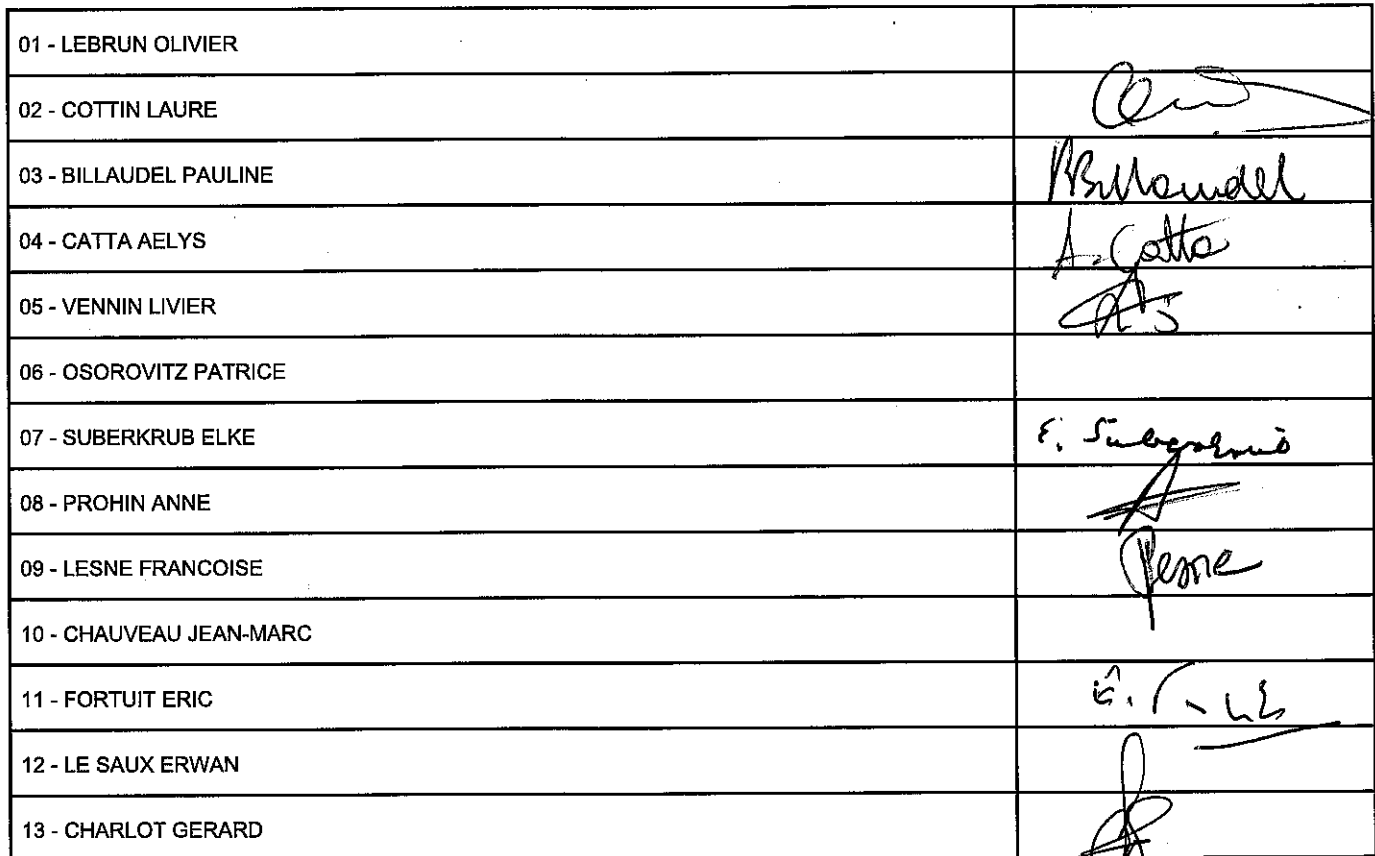 01 - LEBRUN OLIVIER
02 - COTTIN LAURE
03 - BILLAUDEL PAULINE
PBillaudel
04 - CATTA AELYS
A. Catta
05 - VENNIN LIVIER
06 - OSOROVITZ PATRICE
07 - SUBERKRUB ELKE
E. Suberkrub
08 - PROHIN ANNE
09 - LESNE FRANCOISE
10 - CHAUVEAU JEAN-MARC
11 - FORTUIT ERIC
12 - LE SAUX ERWAN
13 - CHARLOT GERARD